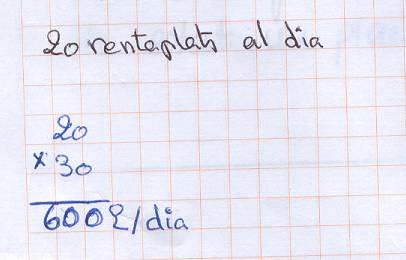 20 rentaplats al dia
20
x 30
600 l/dia